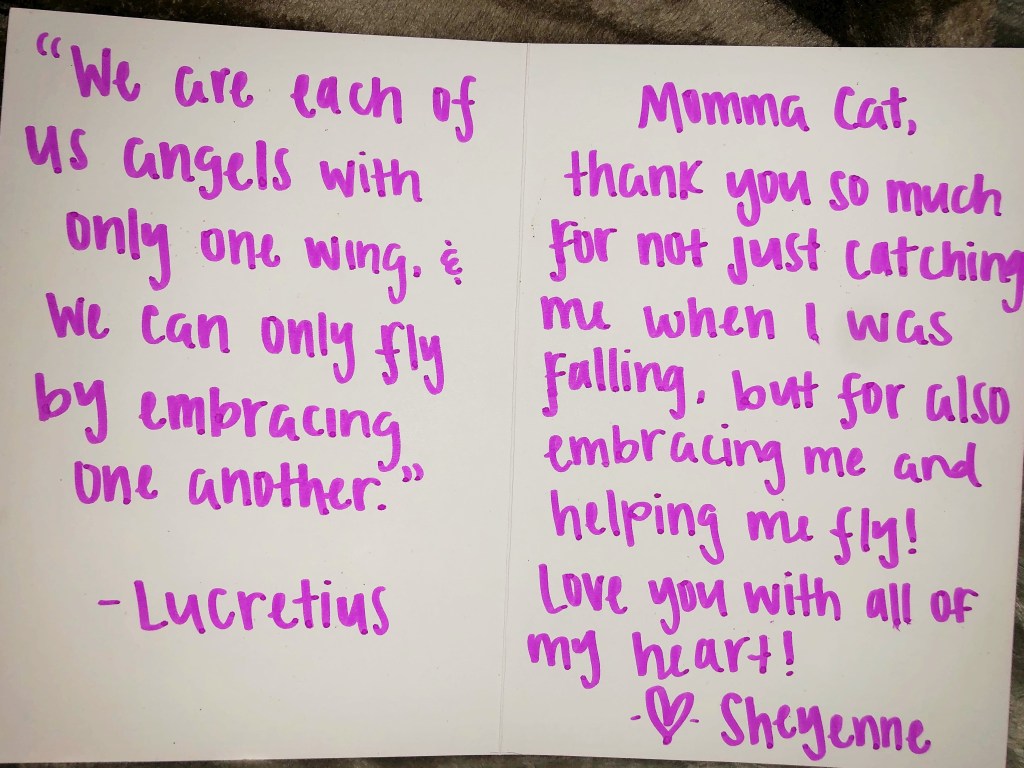 “We are each of
us angels with
only one wing, &
we can only fly
by embracing
one another.”
-Lucretius
Momma Cat,
thank you so much
for not just catching
me when I was
falling, but for also
embracing me and
helping me fly!
Love you with all of
my heart!
-♡- Sheyenne